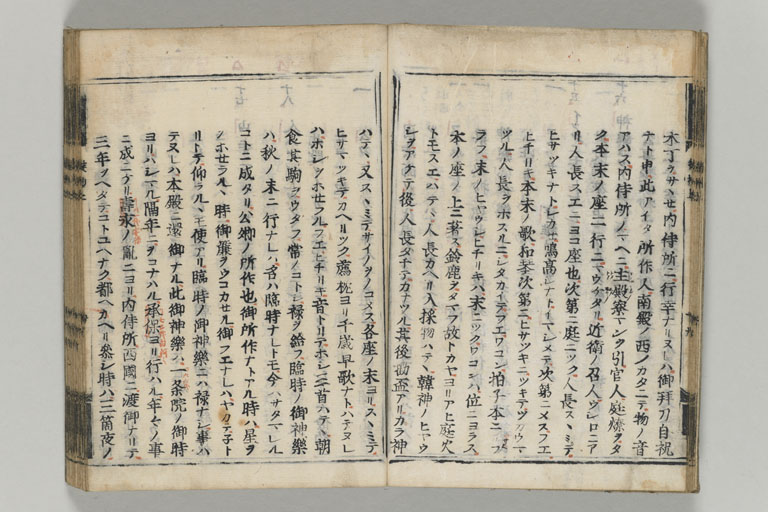 木丁ヲサヽセ内侍所ニ行幸ナリヌレハ御拜アリ自祝
ナト申此アイタ所作人南殿ノ西ノカタニテ物ノ音
アハス内侍所ノマヘニ主殿寮マンク引官人庭燎ヲタ
ク本末ノ座二行ニマウケタリ近衛ノ召人ウシロニア
リ人長スエニヨコ座也次第ニ庭ニツク人長スヽミテ
ヒサツキナトシカセ鳴高シナトイマシメテ次第ニメスフエ
ヒチリキ本末ノ歌
ツル人長ラホスルニシタカイテフエワコン拍子本ニツ
ラフ末ノヒヤウシヒチリキハ末ニツクワコンハ位ニヨラス
本ノ座ノ上ニ著ス鈴鹿ヲタマフ故トカヤヨリアヒ庭火
トモスエハテヽ人長カヘリ入採物ハテヽ韓神ノヒヤウ
シヲアケテ後人長タチテカナツル其後勸盃アリカラ神
ハテヽ又スヽミテサイノヲノコメス各座ノ末ヨリスヽミテ
ヒサマツキテカヘリツク薦枕ヨリ千歳早歌ナトハテヌレ
ハホシツホセフルフエヒチリキ音トリテホシ三首ハテヽ朝
倉其駒ヲウタフ常ノコトシ禄ヲ給フ臨時ノ御神樂
ハ秋ノ末ニ行ナレシ名ハ臨時ナレトモ今ハサタマレル
コトニ成タリ公卿ノ所作也御所作ナトアル時ハ星ヲ
ノホセラルヽ時御簾ヲウコカセル御フエナレハヤカテ子ト
リトテ仰ラルヽモ便アリ臨時ノ御神樂ニハ禄ナシ事ハ
テヌレハ本殿ニ還御ナル此御神樂ハ一条院ノ御時
ヨリハシマル隔年ニヲコナハル承保ヨリ行ハル年々ノ事
ニ成ニケリ壽永ノ亂ニヨリ内侍所西國ニ渡御ナリテ
三年ヲヘタテコトユヘナク都ヘカヘリ參シ時ハ三箇夜ノ